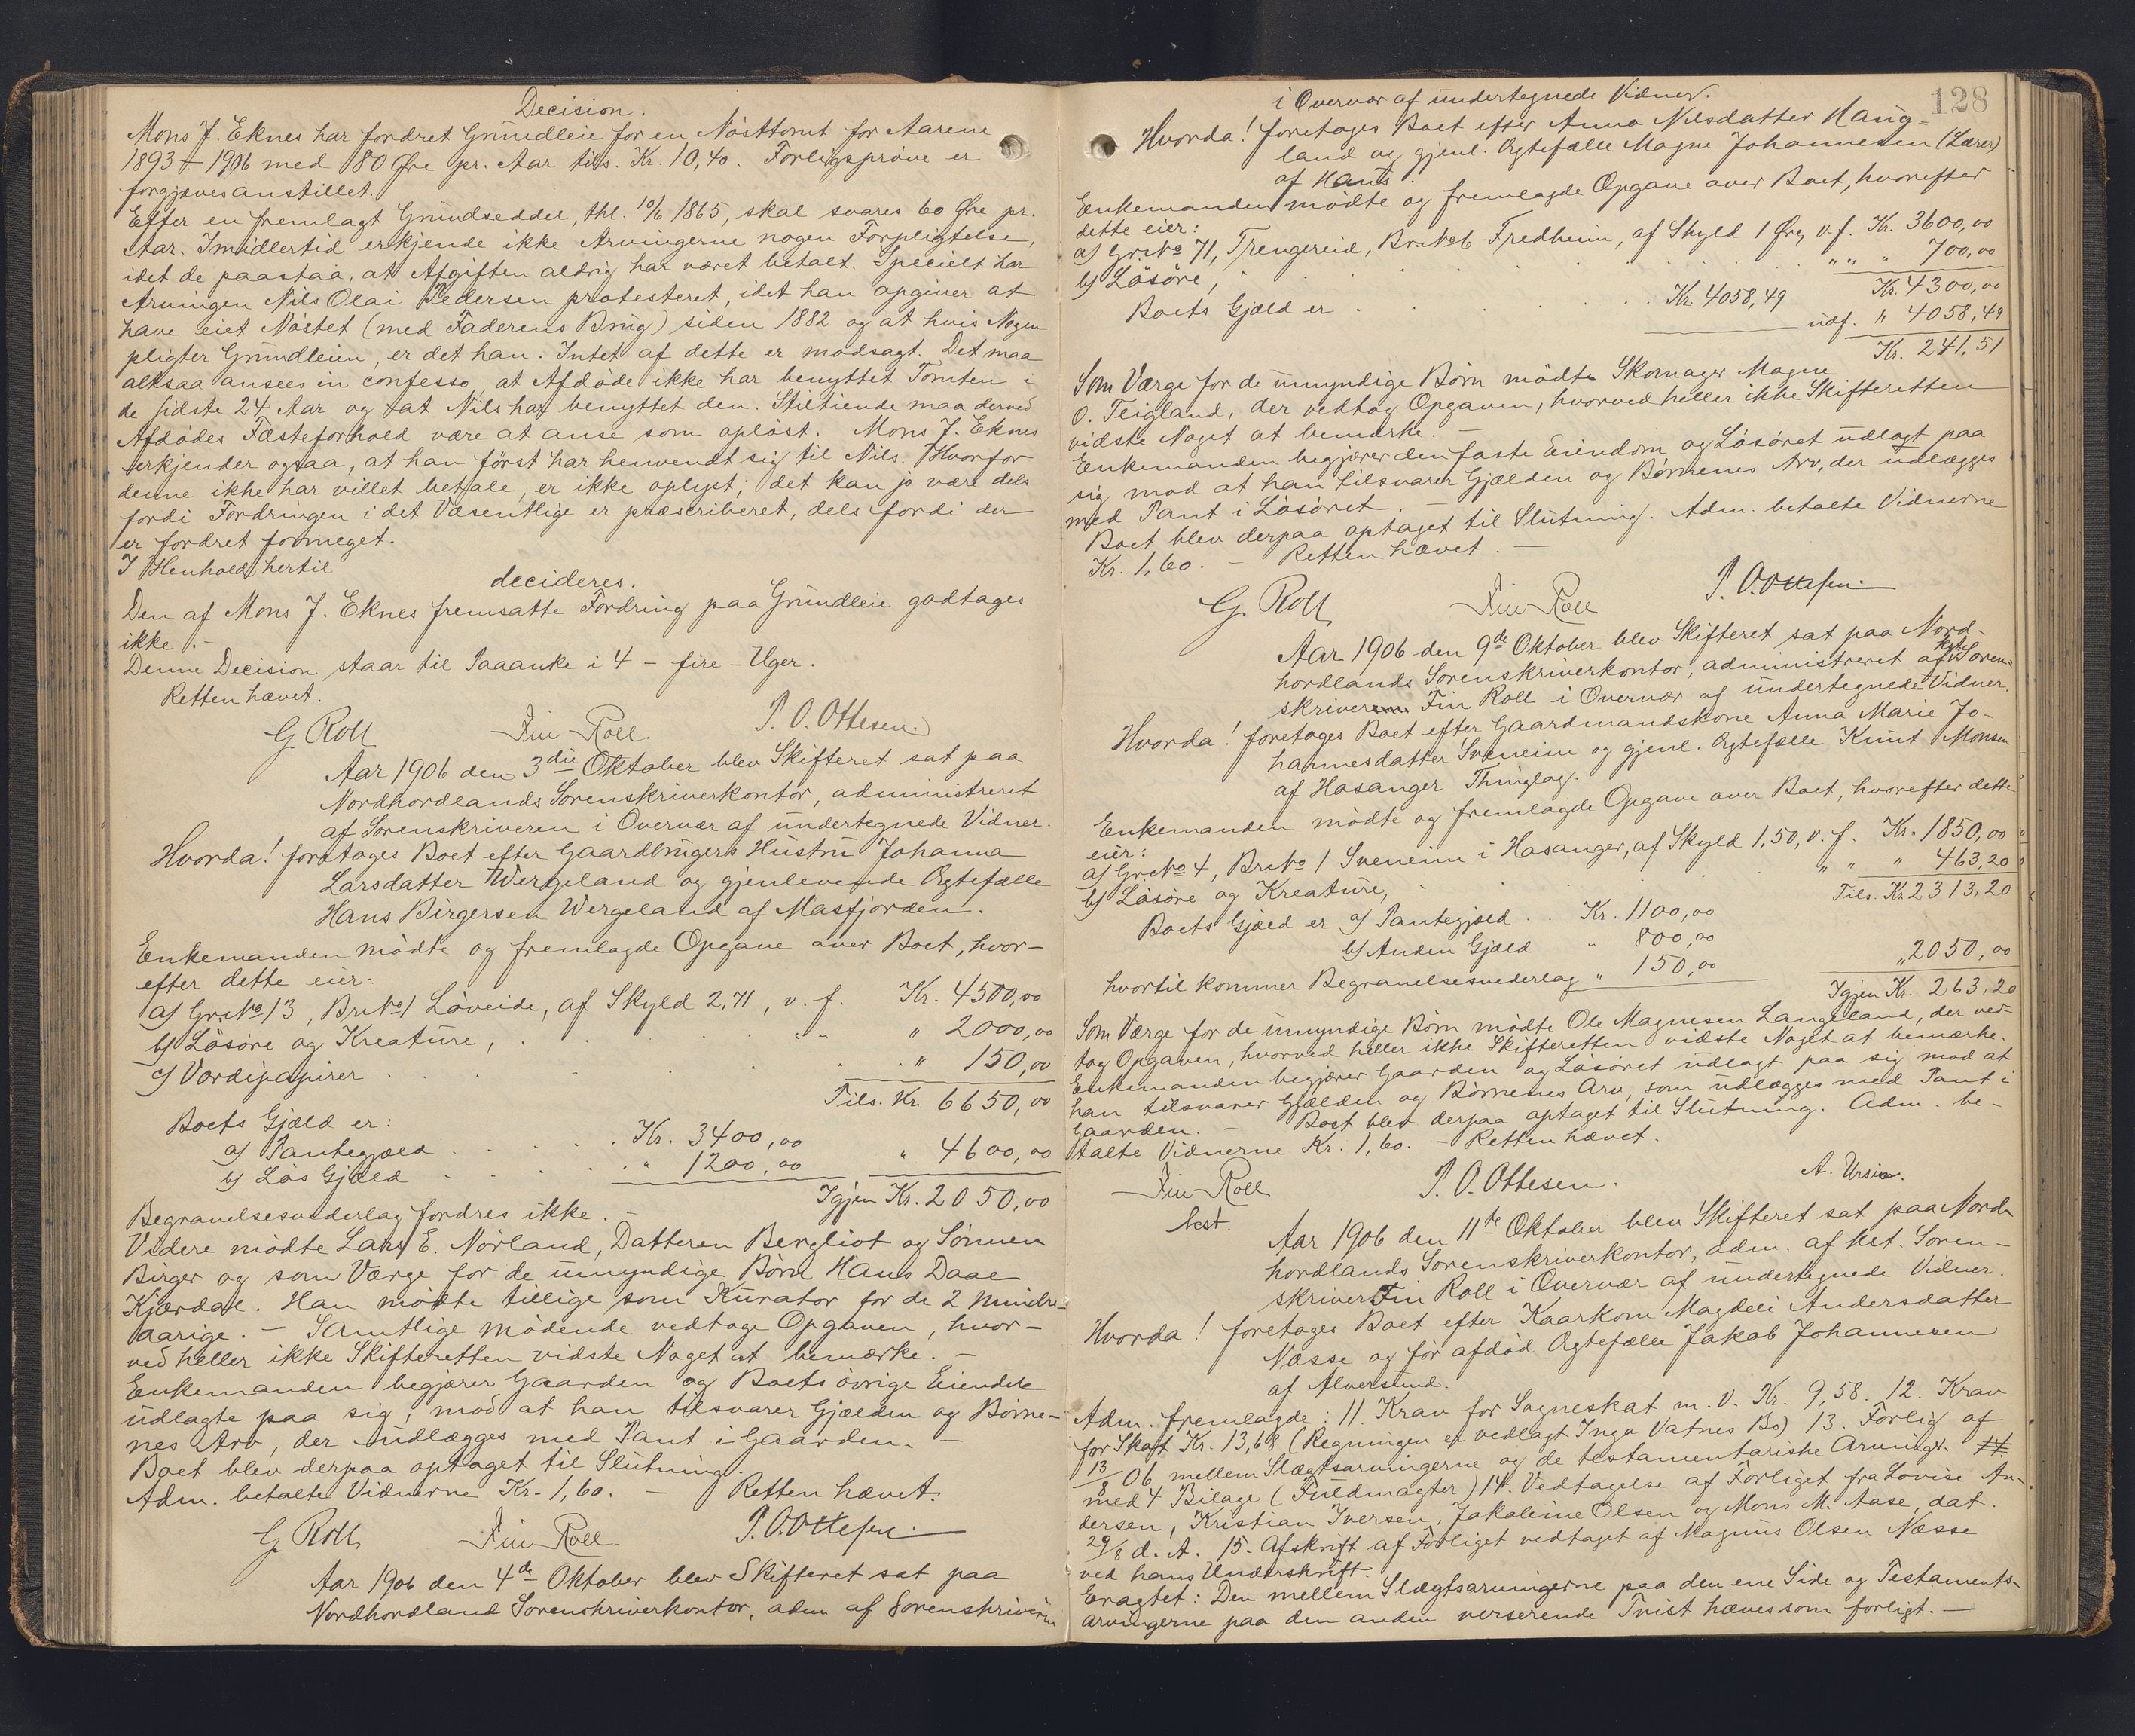 Decision.
Mons J. Eknes har fordret Grundleie for en Nösttomt for Aarene
1893 - 1906 med 80 Øre pr. Aar tils. Kr. 10,40. Forligspröve er
forgjæves anstillet.
Efter en fremlagt Grundseddel, thl. 10/6 1865, skal svares 60 Øre pr.
Aar. Imidlertid erkjende ikke Arvingerne nogen Forpligtelse,
idet de paastaa, at Afgiften aldrig har været betalt. Specielt har
Arvingen Nils Olai Pedersen protesteret, idet han opgiver at
have eiet Nöstet (med Faderens Brug) siden 1882 og at hvis Nogen
pligter Grundleien, er det han. Intet af dette er modsagt. Det maa
altsaa ansees in confesso, at Afdöde ikke har benyttet Tomten i
de sidste 24 Aar og at Nils har benyttet den. Stiltiende maa derved
Afdödes Fæsteforhold være at anse som oplöst. Mons J. Eknes
erkjender ogsaa, at han först har henvendt sig til Nils. Hvorfor
denne ikke har villet betale, er ikke oplyst; det kan jo være dels
fordi Fordringen i det Væsentlige er præscriberet, dels fordi der
er fordret formeget.
I Henhold hertil
decideres.
Den af Mons J. Eknes fremsatte Fordring paa Grundleie godtages
ikke.-
Denne Decision staar til Paaanke i 4 - fire - Uger.
Retten hævet.
G. Roll Fin Roll P. O. Ottesen.
Aar 1906 den 3die Oktober blev Skifteret sat paa
Nordhordlands Sorenskriverkontor, administreret
af Sorenskriveren i Overvær af undertegnede Vidner.
Hvorda! foretoges Boet efter Gaardbrugers Hustru Johanna
Larsdatter Wergeland og gjenlevende Ægtefælle
Hans Birgersen Wergeland af Masfjorden.
Enkemanden mödte og fremlagde Opgave over Boet, hvor-
efter dette eier:
a) Gr.No 13, Br.No 1 Löveide, af Skyld 2,71, v. f. Kr. 4500,00
b) Lösöre og Kreature, . . . . " " " 2000,00
c) Værdipapirer . . . . . . " 150,00
Tils. Kr. 6650,00
Boets Gjæld er:
a) Pantegjæld . . . . Kr. 3400,00
b) Lös Gjæld . . . . " 1200,00 " 4600,00
Igjen Kr. 2050,00
Begravelsesvederlag fordres ikke. -
Videre mödte Lars E. Nörland, Datteren Bergliot og Sönnen
Birger og som Værge for de umyndige Börn Hans Daae
Kjærdal. Han mödte tillige som Kurator for de 2 Mindre-
aarige. - Samtlige Mödende vedtoge Opgaven, hvor-
ved heller ikke Skifteretten vidste Noget at bemærke. -
Enkemanden begjærer Gaarden og Boets övrige Eiendele
udlagte paa sig, mod at han tilsvarer Gjælden og Börne-
nes Arv, der udlægges med Pant i Gaarden. -
Boet blev derpaa optaget til Slutning.
Adm. betalte Vidnerne Kr. 1,60. - Retten hævet.
G. Roll Fin Roll P. O. Ottesen.
Aar 1906 den 4de Oktober blev Skifteret sat paa
Nordhordland Sorenskriverkontor, adm af Sorenskriveren
128
i Overvær af undertegnede Vidner.
Hvorda! foretoges Boet efter Anna Nilsdatter Haug-
land og gjenl. Ægtefælle Magne Johannesen (Lærer)
af Haus.
Enkemanden mödte og fremlagde Opgave over Boet, hvorefter
dette eier:
a) Gr.No 71, Trengereid, Br.No 6 Fredheim, af Skyld 1 Øre, v. f. Kr. 3600,00
b) Lösöre, . . . . . . . " " " 700,00
Kr. 4300,00
Boets Gjæld er . . . . . Kr. 4058,49
udf. " 4058,49
Kr. 241,51
Som Værge for de umyndige Börn mödte Skomager Magne
O. Teigland, der vedtog Opgaven, hvorved heller ikke Skifteretten
vidste Noget at bemærke. -
Enkemanden begjærer den faste Eiendom og Lösöret udlagt paa
sig mod at han tilsvarer Gjælden og Börnenes Arv, der udlægges
med Pant i Lösöret. -
Boet blev derpaa optaget til Slutning. Adm. betalte Vidnerne
Kr. 1,60. - Retten hævet. -
G. Roll Fin Roll P. O. Ottesen.
Aar 1906 den 9de Oktober blev Skifteret sat paa Nord-
hordlands Sorenskriverkontor, administreret af kst. Soren-
skriveren Fin Roll i Overvær af undertegnede Vidner.
Hvorda! foretoges Boet efter Gaardmandskone Anna Marie Jo-
hannesdatter Sveneim og gjenl. Ægtefælle Knut Monsen
af Hosanger Thinglag.
Enkemanden mödte og fremlagde Opgave over Boet, hvorefter dette
eier:
a) Gr.No 4, Br.No 1 Sveneim i Hosanger, af Skyld 1,50, v. f. Kr. 1850,00
b) Lösöre og Kreature, . . . . . " " " 463,20
Tils. Kr. 2313,20
Boets Gjæld er a) Pantegjæld . . Kr. 1100,00
b) Anden Gjæld " 800,00
hvortil kommer Begravelsesvederlag " 150,00 " 2050,00
Igjen Kr. 263,20
Som Værge for de umyndige Börn mödte Ole Magnesen Langeland, der ved-
tog Opgaven, hvorved heller ikke Skifteretten vidste Noget at bemærke.
Enkemanden begjærer Gaarden og Lösöret udlagt paa sig mod at
han tilsvarer Gjælden og Börnenes Arv, som udlægges med Pant i
Gaarden. - Boet blev derpaa optaget til Slutning. Adm. be-
talte Vidnerne Kr. 1,60. - Retten hævet.
Fin Roll P. O. Ottesen. A. Ursin.
kst.
Aar 1906 den 11te Oktober blev Skifteret sat paa Nord-
hordlands Sorenskriverkontor, adm. af kst. Soren-
skriver Fin Roll i Overvær af undertegnede Vidner.
Hvorda! foretoges Boet efter Kaarkone Magdeli Andersdatter
Næsse og för afdöd Ægtefælle Jakob Johannesen
af Alversund.
Adm. fremlagde: 11. Krav for Sogneskat m. v. Kr. 9,58. 12. Krav
for Skat Kr. 13,68 (Regningen er vedlagt Inga Vatnes Bo) 13. Forlig af
13/8 06 mellem Slægtsarvingerne og de testamentariske Arvinger.
med 4 Bilage (Fuldmagter) 14. Vedtagelse af Forliget fra Lovise An-
dersen, Kristian Iversen, Jakoline Olsen og Mons M. Aase, dat.
29/8 d. A. 15. Afskrift af Forliget vedtaget af Magnus Olsen Næsse
ved hans Underskrift.
Eragtet: Den mellem Slægtsarvingerne paa den ene Side og Testaments-
arvingerne paa den anden verserende Tvist hæves som forligt. -